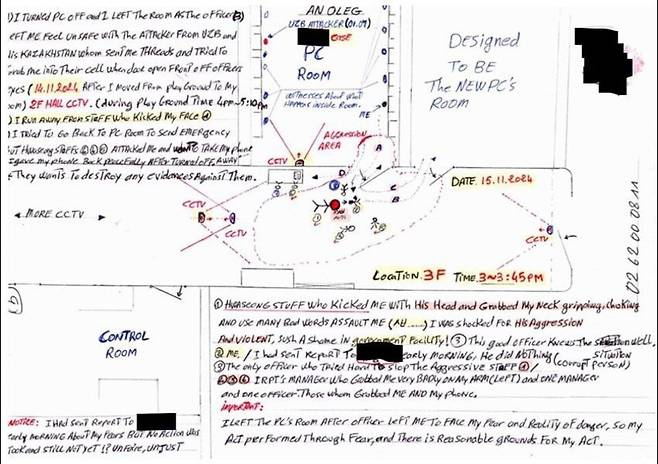 I TURNED PC OFF AND I LEFT THE ROOM AS THE OFFICER
LEFT ME FEEL UNSAFE WITH THE ATTACKER FROM UZB AND
HIS KAZAKHSTAN WHOM SENT ME THREADS AND TRIED TO
ME INTO THEIR CELL WHEN DOOR OPEN FRONT OFF OFFICERS
EYES (14.11.2024 AFTER I MOVED FROM PLAY GROUND TO MY
ROOM) 2F HALL CCTV. (DURING PLAY GROUND TIME 4PM~5:10PM
I RUN AWAY FROM STAFF WHO KICKED MY FACE ①
I TRIED TO GO BACK TO PC ROOM TO SEND EMERGENCY
BUT HWASEONG STUFFS ④⑤⑥ ATTACKED ME AND WANT TO TAKE MY PHONE
I GAVE MY PHONE BACK PEACEFULLY AFTER TURNED OFF AWAY
THEY WANTS TO DESTROY ANY EVIDENCES AGAINST THEM.
AN OLEG
UZB ATTACKER (01.07)
PC
ROOM
WITNESSES ABOUT WHAT
HAPPENS INSIDE ROOM.
ME
DESIGNED
TO BE
THE NEW PC's
ROOM
AGRESSION
AREA
CCTV
A
D
C
B
DATE. 15.11.2024
← MORE CCTV →
CCTV
CCTV
CCTV
LOCATION. 3F TIME. 3~3:45PM
02 62 00 08 11
CONTROL
ROOM
① HWASEONG STUFF WHO KICKED ME WITH HIS HEAD AND GRABBED MY NECK GRIPPING, CHOKING
AND USE MANY BAD WORDS ASSAULT ME I WAS SHOCKED FOR HIS AGGRESSION
AND VIOLENT, SUCH A SHAME IN GOVERNMENT FACILITY! ③ THIS GOOD OFFICER KNEWS THE SITUATION WELL,
② ME / I HAD SENT REPORT TO EARLY MORNING, HE DID NOTHING (CORRUPT PERSON)
③ THE ONLY OFFICER WHO TRIED HARD TO STOP THE AGGRESSIVE STAFF ①/
④⑤⑥ MANAGER WHO GRABBED ME VERY BADLY ON MY ARM (LEFT) AND ONE MANAGER
AND ONE OFFICER. THOSE WHOM GRABBED ME AND MY PHONE.
IMPORTANT:
I LEFT THE PC's ROOM AFTER OFFICER LEFT ME TO FACE MY FEAR AND REALITY OF DANGER, SO MY
ACT PERFORMED THROUGH FEAR, AND THERE IS REASONABLE GROUNDS FOR MY ACT.
NOTICE: I HAD SENT REPORT TO
EARLY MORNING ABOUT MY FEARS BUT NO ACTION WAS
TOOK AND STILL NOT YET !? UNFAIRE, UNJUST